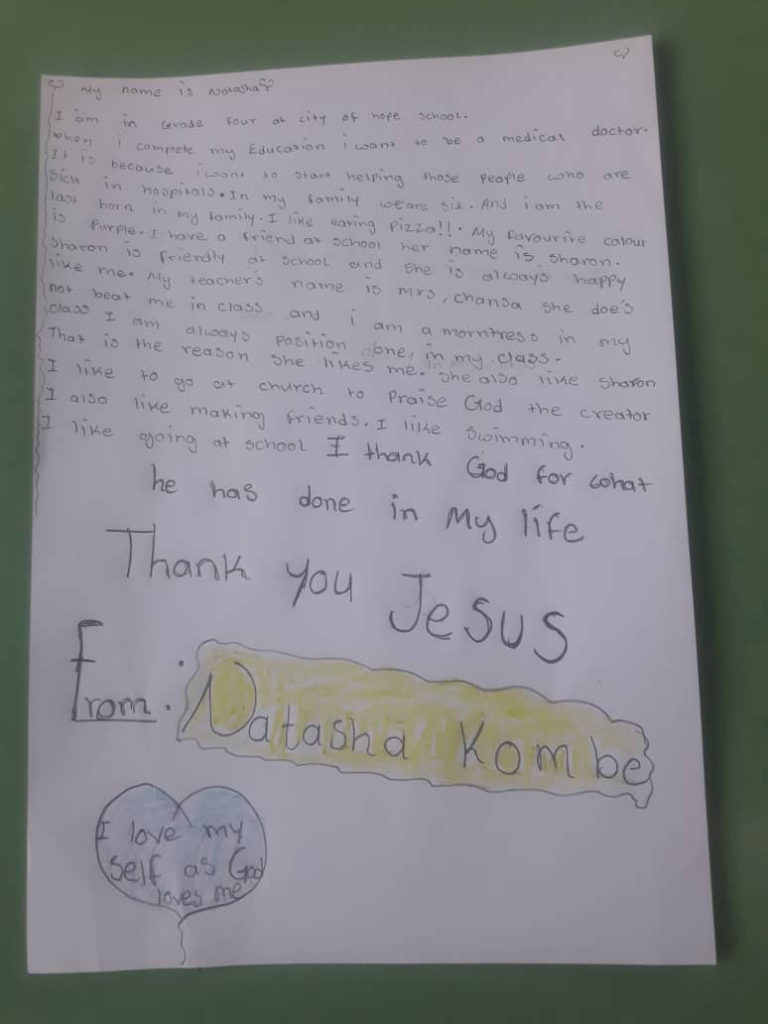 My name is Natasha
I am in Grade four at city of hope school.
when i complete my Education i want to be a medical doctor.
It is because i want to start helping those people who are
sick in hospitals. In my family we are six. And i am the
last born in my family. I like earing pizza!! . My favourire colour
is purple. I have a friend at school her name is sharon.
Sharon is friendly at school and she is always happy
like me. My teacher's name is mrs, chansa she doe's
not beat me in class and i am a morntress in my
class I am always position one, in my class.
That is the reason she likes me. She also like sharon
I like to go at church to Praise God the creator
I also like making friends. I like swimming.
I like going at school I thank God for what
he has done in My life
Thank you Jesus
From: Natasha Kombe
I love my
self as God
loves me